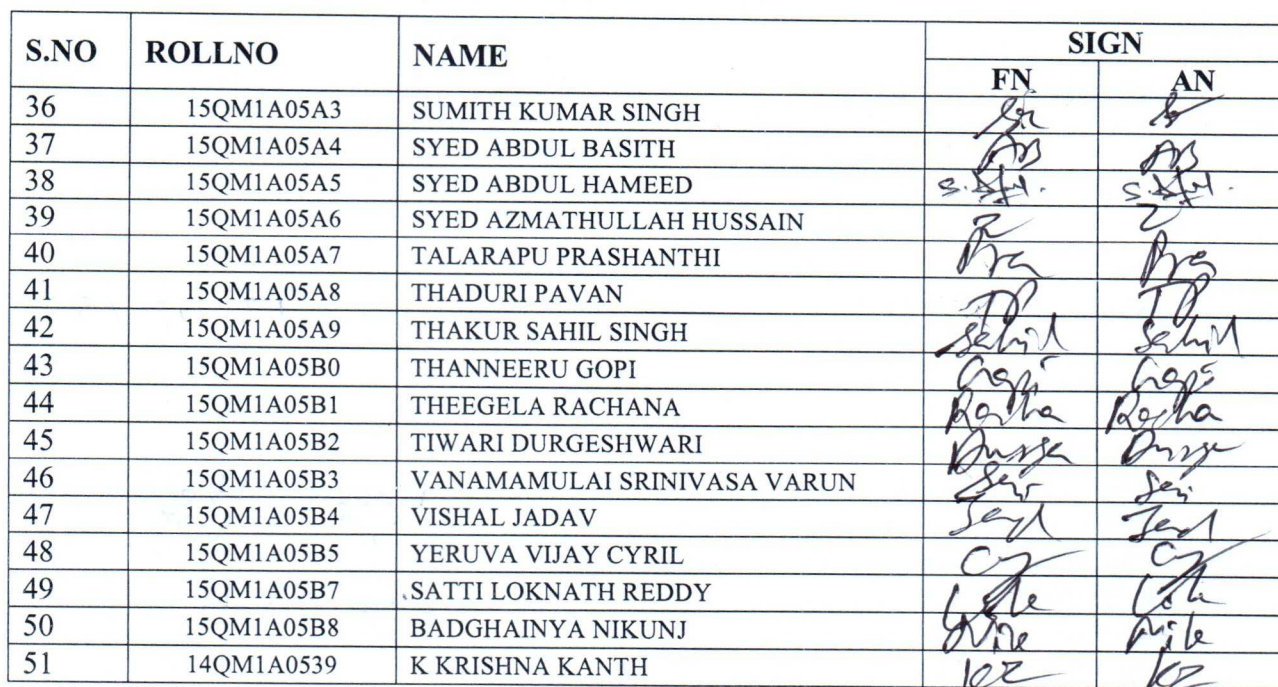 S.NO ROLLNO NAME SIGN
FN AN
36 15QM1A05A3 SUMITH KUMAR SINGH
37 15QM1A05A4 SYED ABDUL BASITH AB AB
38 15QM1A05A5 SYED ABDUL HAMEED
39 15QM1A05A6 SYED AZMATHULLAH HUSSAIN
40 15QM1A05A7 TALARAPU PRASHANTHI Pra Pra
41 15QM1A05A8 THADURI PAVAN TP TP
42 15QM1A05A9 THAKUR SAHIL SINGH Sahil Sahil
43 15QM1A05B0 THANNEERU GOPI Gopi Gopi
44 15QM1A05B1 THEEGELA RACHANA
45 15QM1A05B2 TIWARI DURGESHWARI Durga Durga
46 15QM1A05B3 VANAMAMULAI SRINIVASA VARUN
47 15QM1A05B4 VISHAL JADAV
48 15QM1A05B5 YERUVA VIJAY CYRIL Cy Cy
49 15QM1A05B7 SATTI LOKNATH REDDY
50 15QM1A05B8 BADGHAINYA NIKUNJ
51 14QM1A0539 K KRISHNA KANTH